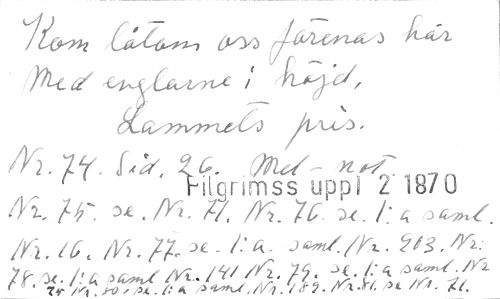 Kom låtom oss förenas här
Med englarne i höjd,
Lammets pris.
Nr. 74. Sid. 26. Mel - not.
Pilgrimss uppl 2 1870
Nr. 75. se. Nr. 71. Nr. 76. se. 1:a saml.
Nr. 16. Nr. 77. se. 1:a. saml. Nr. 263. Nr:
78. se. 1:a saml Nr. 141 Nr. 79. se. 1:a saml. Nr
Nr. 80. se. 1:a saml. Nr. 189. Nr. 81. se Nr. 71.